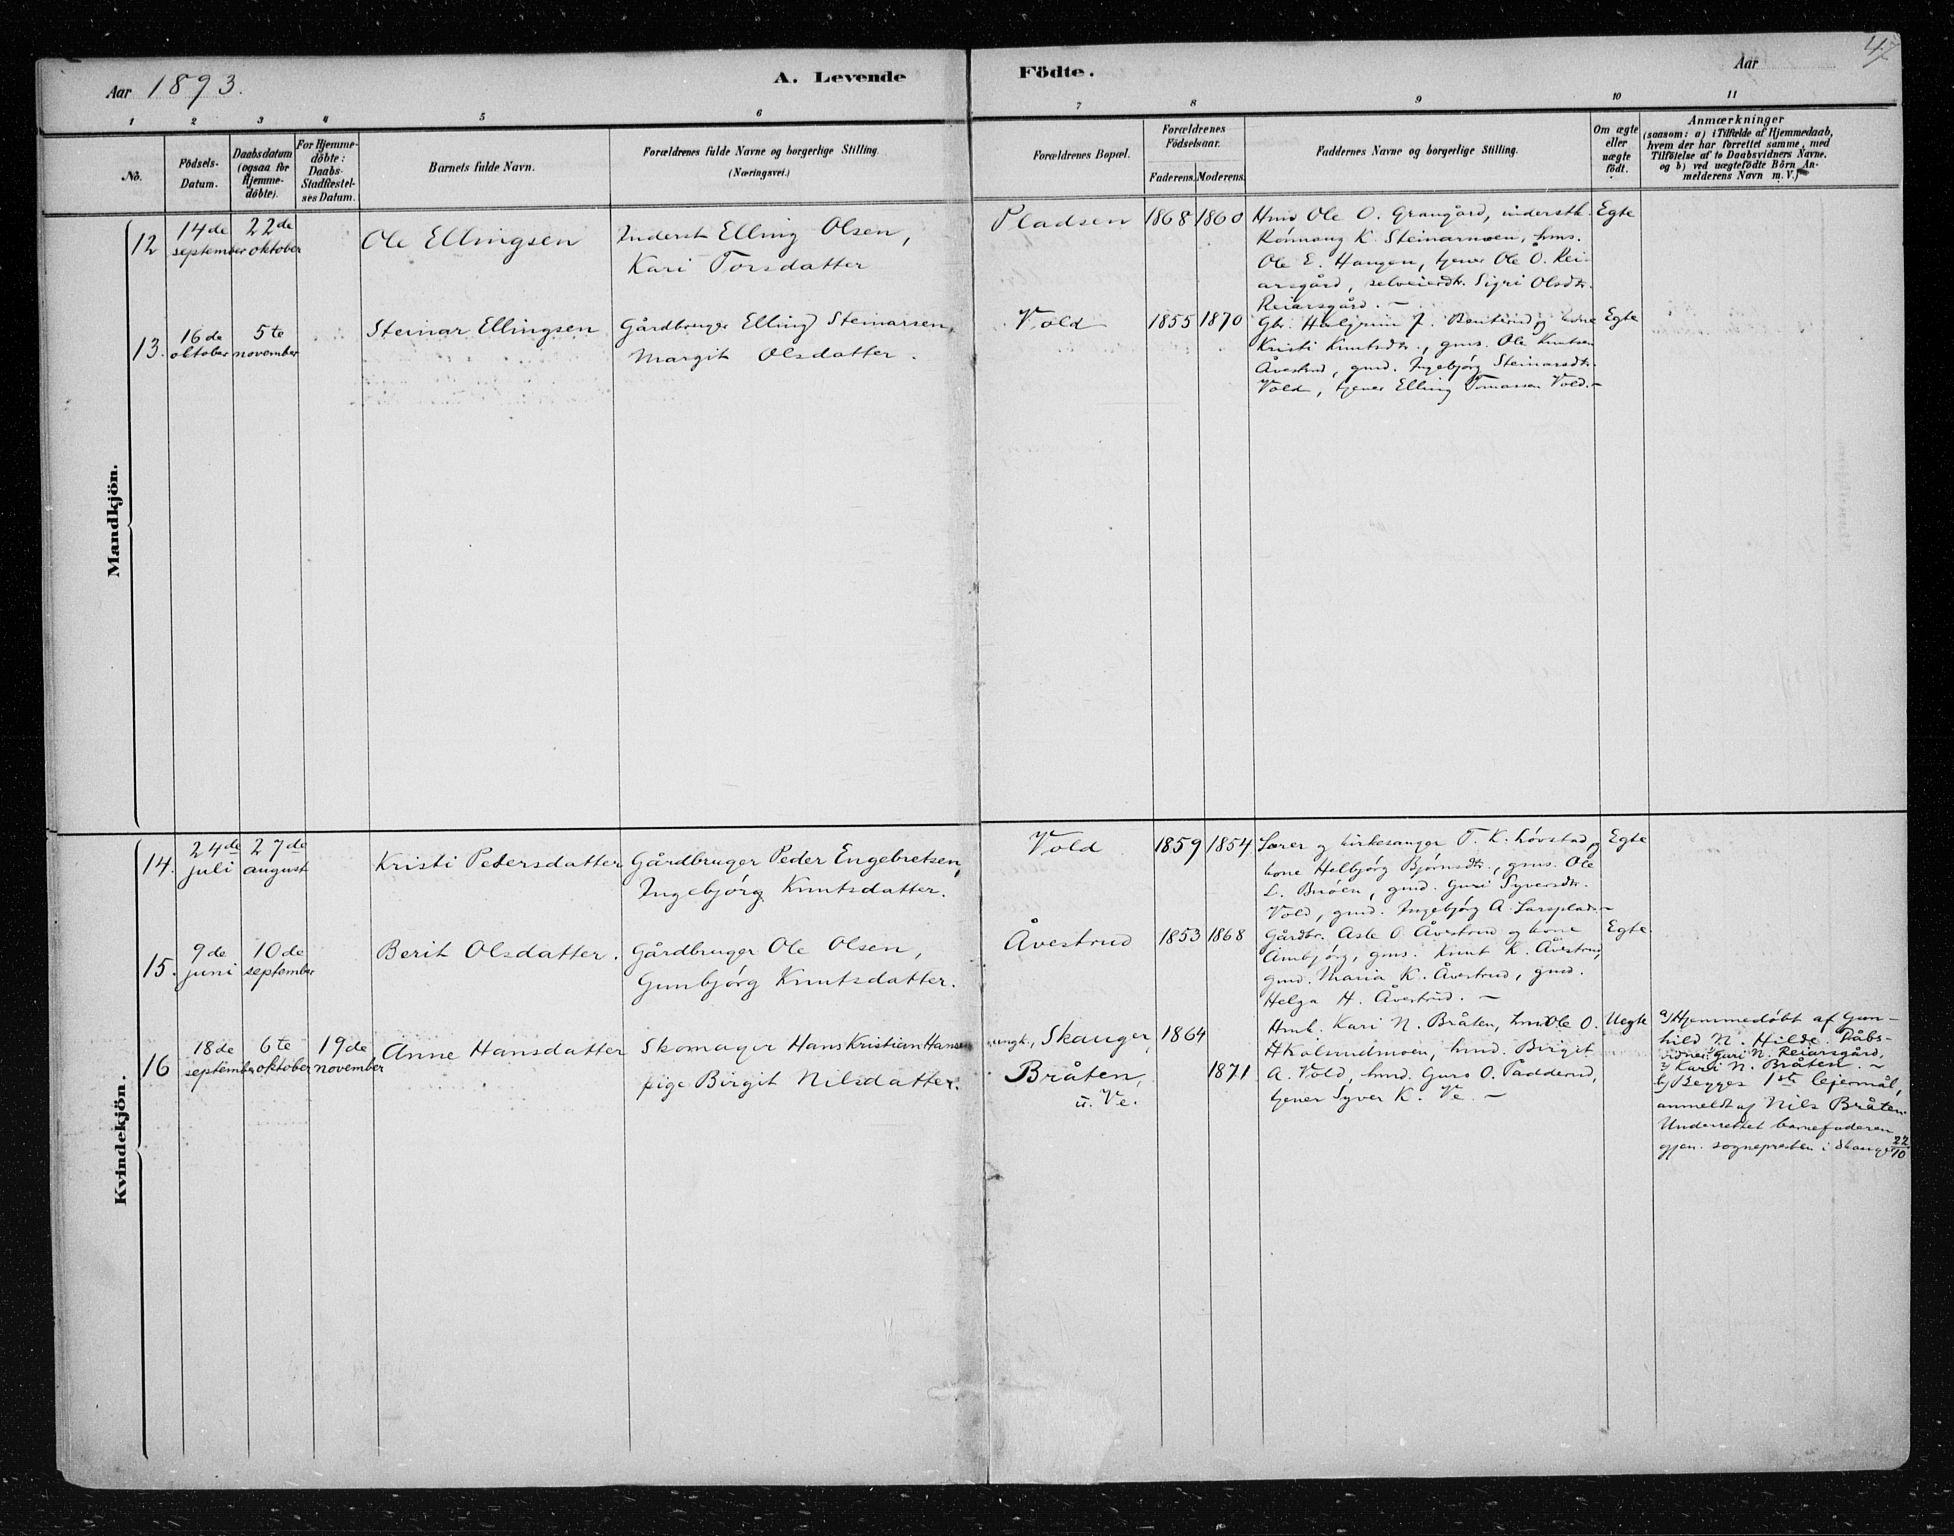 47
Aar 1893.
A. Levende
Födte.
Aar
1 2 3 4 5 6 7 8 9 10 11
No.
Födsels-
Datum.
Daabsdatum
(ogsaa for
Hjemme-
döbte).
For Hjemme-
döbte:
Daabs-
Stadfæstel-
ses Datum.
Barnets fulde Navn.
Forældrenes fulde Navne og borgerlige Stilling.
(Næringsvei.)
Forældrenes Bopæl.
Forældrenes
Födselsaar.
Faderens. Moderens.
Faddernes Navne og borgerlige Stilling.
Om ægte
eller
uægte
födt.
Anmærkninger
(saasom: a) i Tilfælde af Hjemmedaab,
hvem der har forrettet samme, med
Tilföielse af to Daabsvidners Navne.
og b) ved uægtefödte Börn An-
melderens Navn m. V.)
Mandkjön.
12
14de
september
22de
oktober
Ole Ellingsen
Inderst Elling Olsen,
Kari Torsdatter
Pladsen
1868 1860
Hmd Ole O. Grangård, indersth.
Rönnaug K. Steinarmoen, hms.
Ole E. Haugen, tjener Ole O. Rei-
arsgård, selveierdtr. Sigri Olsdtr.
Reiarsgård. —
Egte
13.
16de
oktober
5te
november
Steinar Ellingsen
Gårdbruger Elling Steinarsen,
Margit Olsdatter.
Vold
1855 1870
Kristi Knutsdtr., gms. Ole Knutsen
Åvestrud, gmd. Ingebjörg Steinarsdtr.
Vold, tjener Elling Tomassen Vold. —
Egte
Kvindekjön.
14.
24de
juli
27de
august
Kristi Pedersdatter
Gårdbruger Peder Engebretsen,
Ingebjörg Knutsdatter.
Vold
1859 1854
Lærer og kirkesanger T. K. Lövstad, og
kone Helbjörg Björnsdtr., gms. Ole
L. Bröen, gmd. Guri Syversdtr.
Vold, gmd. Ingebjörg A. Larsplads. —
Egte
15.
9de
juni
10de
september
Berit Olsdatter.
Gårdbruger Ole Olsen,
Gunbjörg Knutsdatter.
Åvestrud
1853 1868
Gårdbr. Asle O. Åvestrud og kone
Gunbjörg, gms. Knut K. Åvestrud,
gmd. Maria K. Åvestrud, gmd.
Helga H. Åvestrud. —
Egte
16
18de
september
6te
oktober
19de
november
Anne Hansdatter
Skomager Hans Kristian Hansen
pige Birgit Nilsdatter.
ungk., Skauger,
Bråten,
u. Ve.
1864
1871
Hmk. Kari N. Bråten, hmd Ole O.
Birgit
A. Vold, hmd. Guro O. Padderud,
tjener Syver K. Ve. —
Uegte
a) Hjemmedöbt af Gun-
hild N. Hilde. Dåbs-
vidner: Guri N. Reiarsgård,
Kari N. Bråten. —
b) Begges 1ste lejermål,
anmeldt af Nils Bråten.
Underrettet barnefaderen
gjen. sognepresten i Skauger 22/10